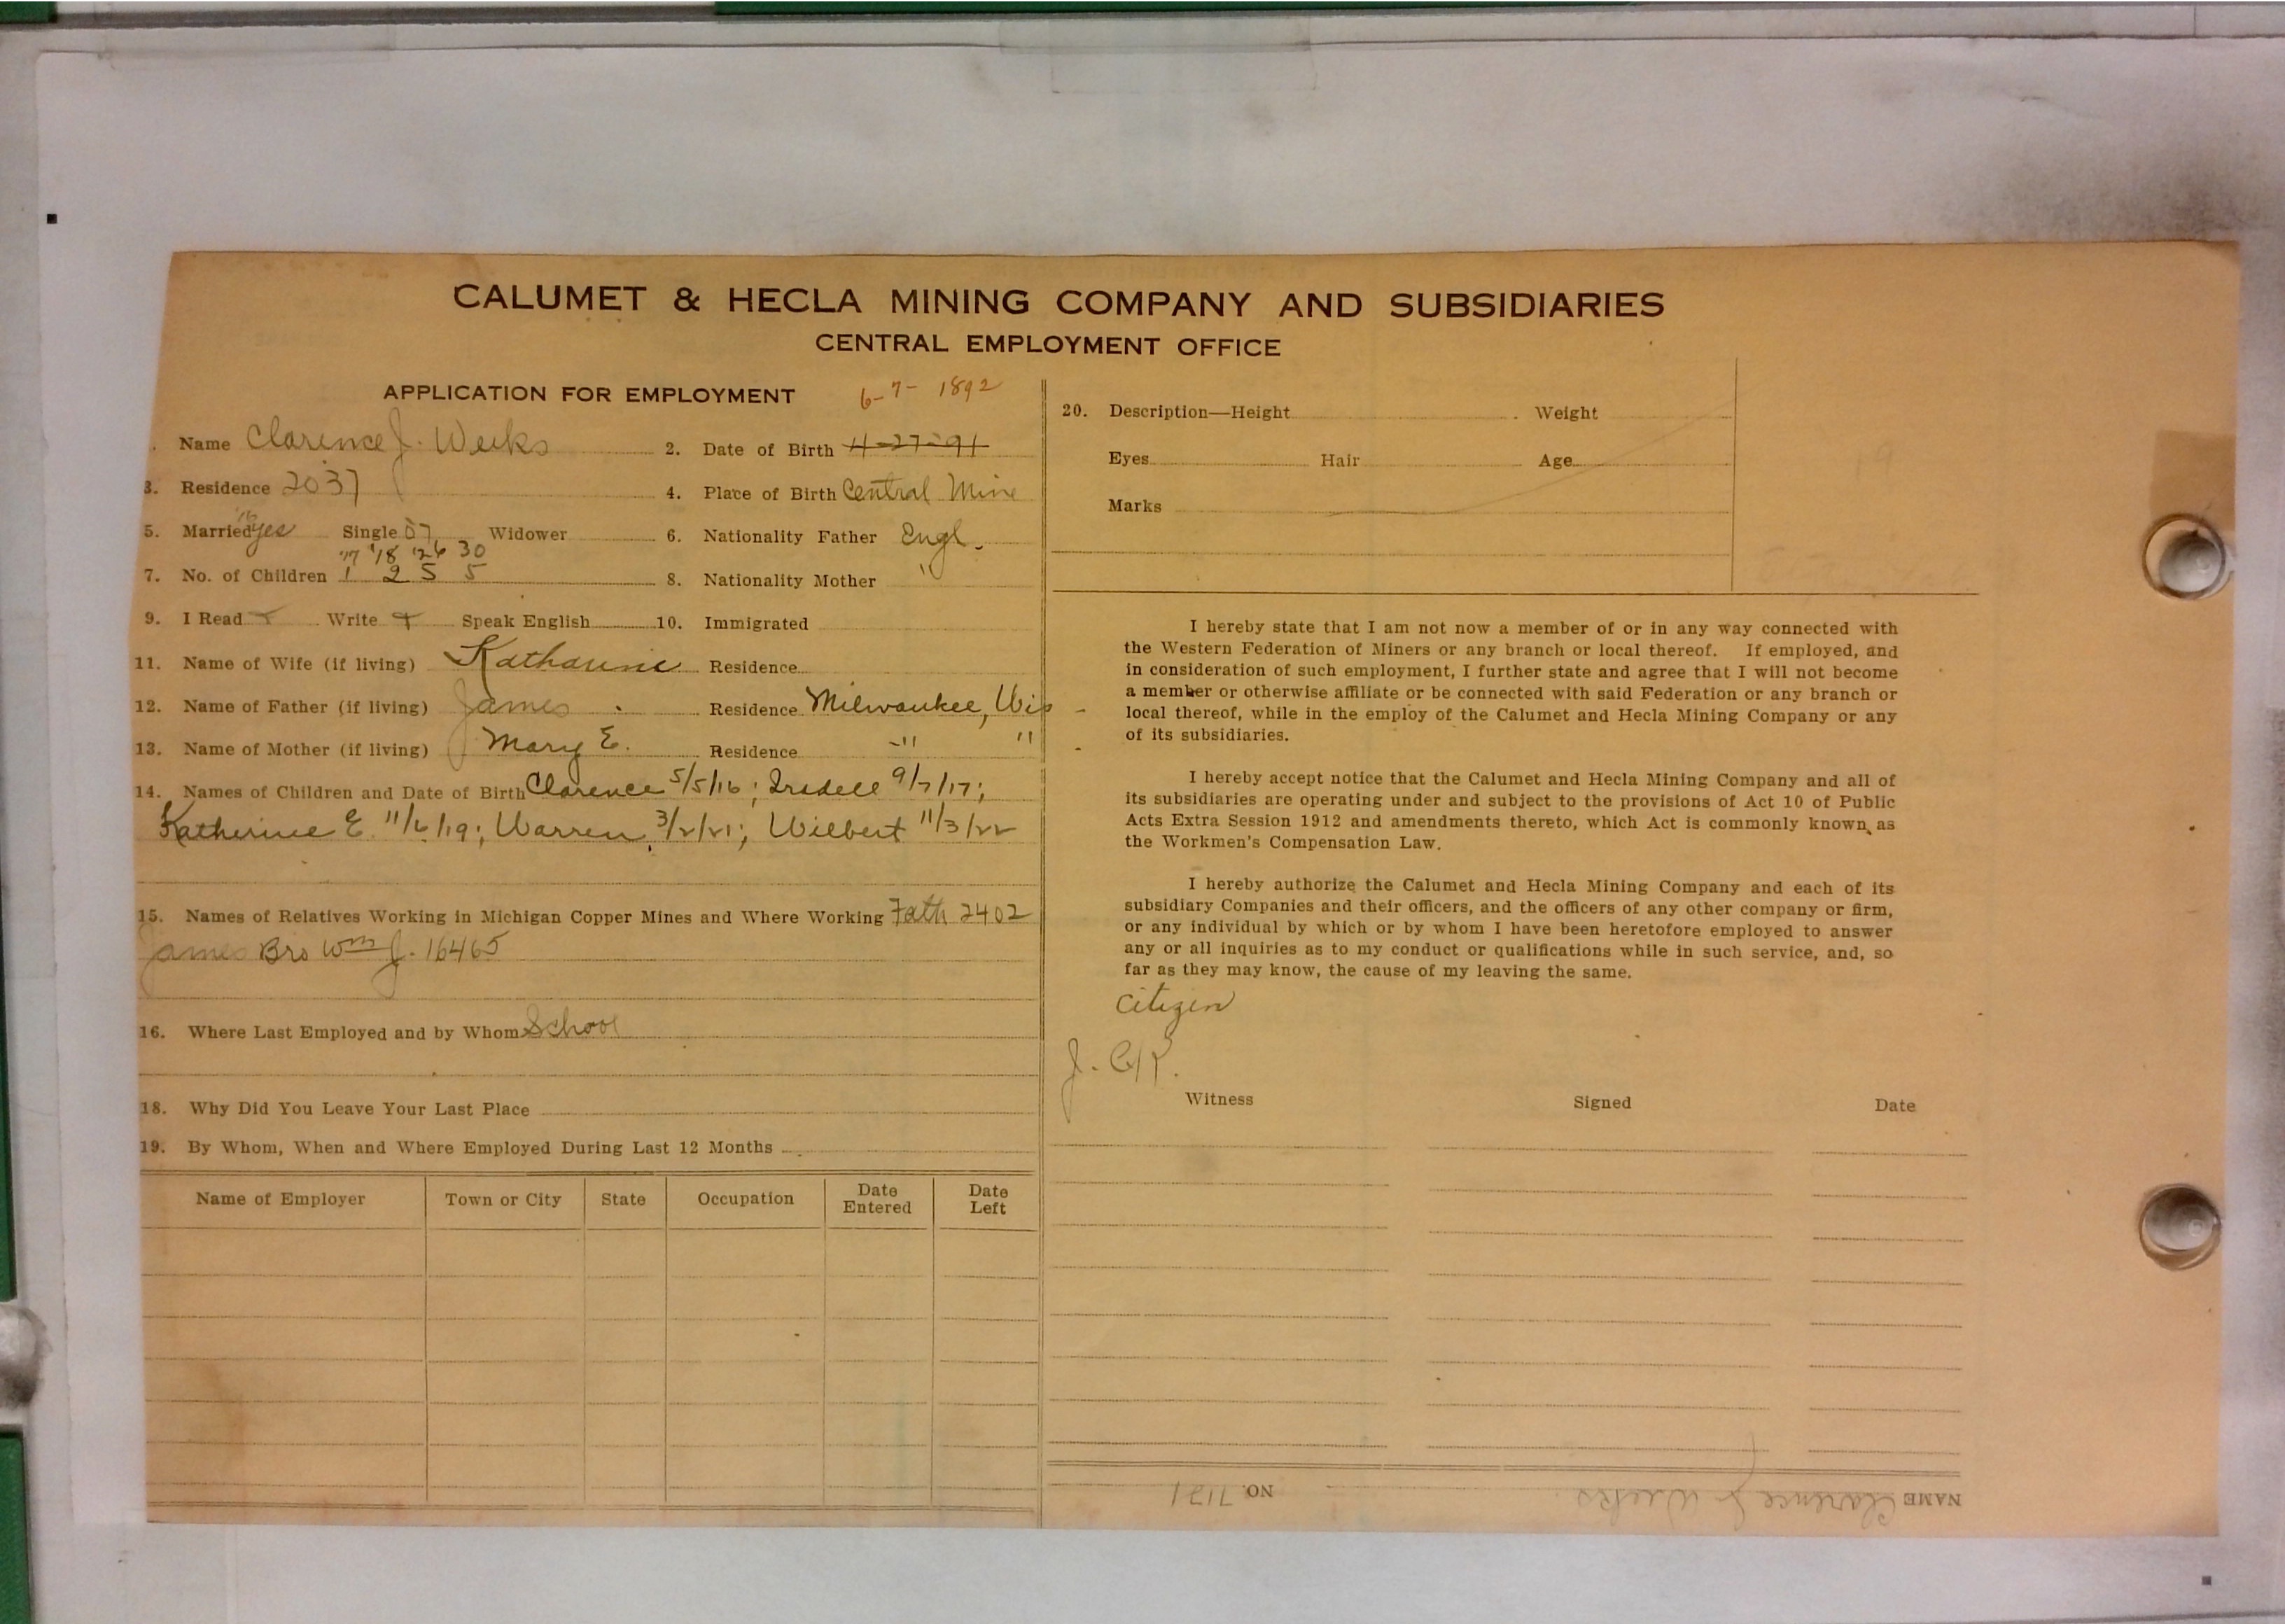 CALUMET & HECLA MINING COMPANY AND SUBSIDIARIES
CENTRAL EMPLOYMENT OFFICE
APPLICATION FOR EMPLOYMENT 6-7-1892
. Name Clarence J. Weeks 2. Date of Birth 4-27-91
3. Residence 2037 4. Place of Birth Central Mine
5. Married yes Single 07 Widower 6. Nationality Father Engl.
'17 '18 '26 30
7. No. of Children 1 2 5 5 8. Nationality Mother "
9. I Read Write Speak English 10. Immigrated
11. Name of Wife (if living) Katharine Residence
12. Name of Father (if living) James Residence Milwaukee, Wis
13. Name of Mother (if living) Mary E. Residence " "
14. Names of Children and Date of Birth Clarence 5/5/16; Iredell 9/7/17;
Katherine E 11/6/19; Warren 3/2/21; Wilbert 11/3/22
15. Names of Relatives Working in Michigan Copper Mines and Where Working Fath 2402
James Bro Wm J. 16465
16. Where Last Employed and by Whom School
18. Why Did You Leave Your Last Place
19. By Whom, When and Where Employed During Last 12 Months
Name of Employer Town or City State Occupation Date Entered Date Left
20. Description—Height Weight
Eyes Hair Age
Marks
I hereby state that I am not now a member of or in any way connected with
the Western Federation of Miners or any branch or local thereof. If employed, and
in consideration of such employment, I further state and agree that I will not become
a member or otherwise affiliate or be connected with said Federation or any branch or
local thereof, while in the employ of the Calumet and Hecla Mining Company or any
of its subsidiaries.
I hereby accept notice that the Calumet and Hecla Mining Company and all of
its subsidiaries are operating under and subject to the provisions of Act 10 of Public
Acts Extra Session 1912 and amendments thereto, which Act is commonly known as
the Workmen's Compensation Law.
I hereby authorize the Calumet and Hecla Mining Company and each of its
subsidiary Companies and their officers, and the officers of any other company or firm,
or any individual by which or by whom I have been heretofore employed to answer
any or all inquiries as to my conduct or qualifications while in such service, and, so
far as they may know, the cause of my leaving the same.
Citizen
Witness Signed Date
NAME Clarence J Weeks NO. 7121